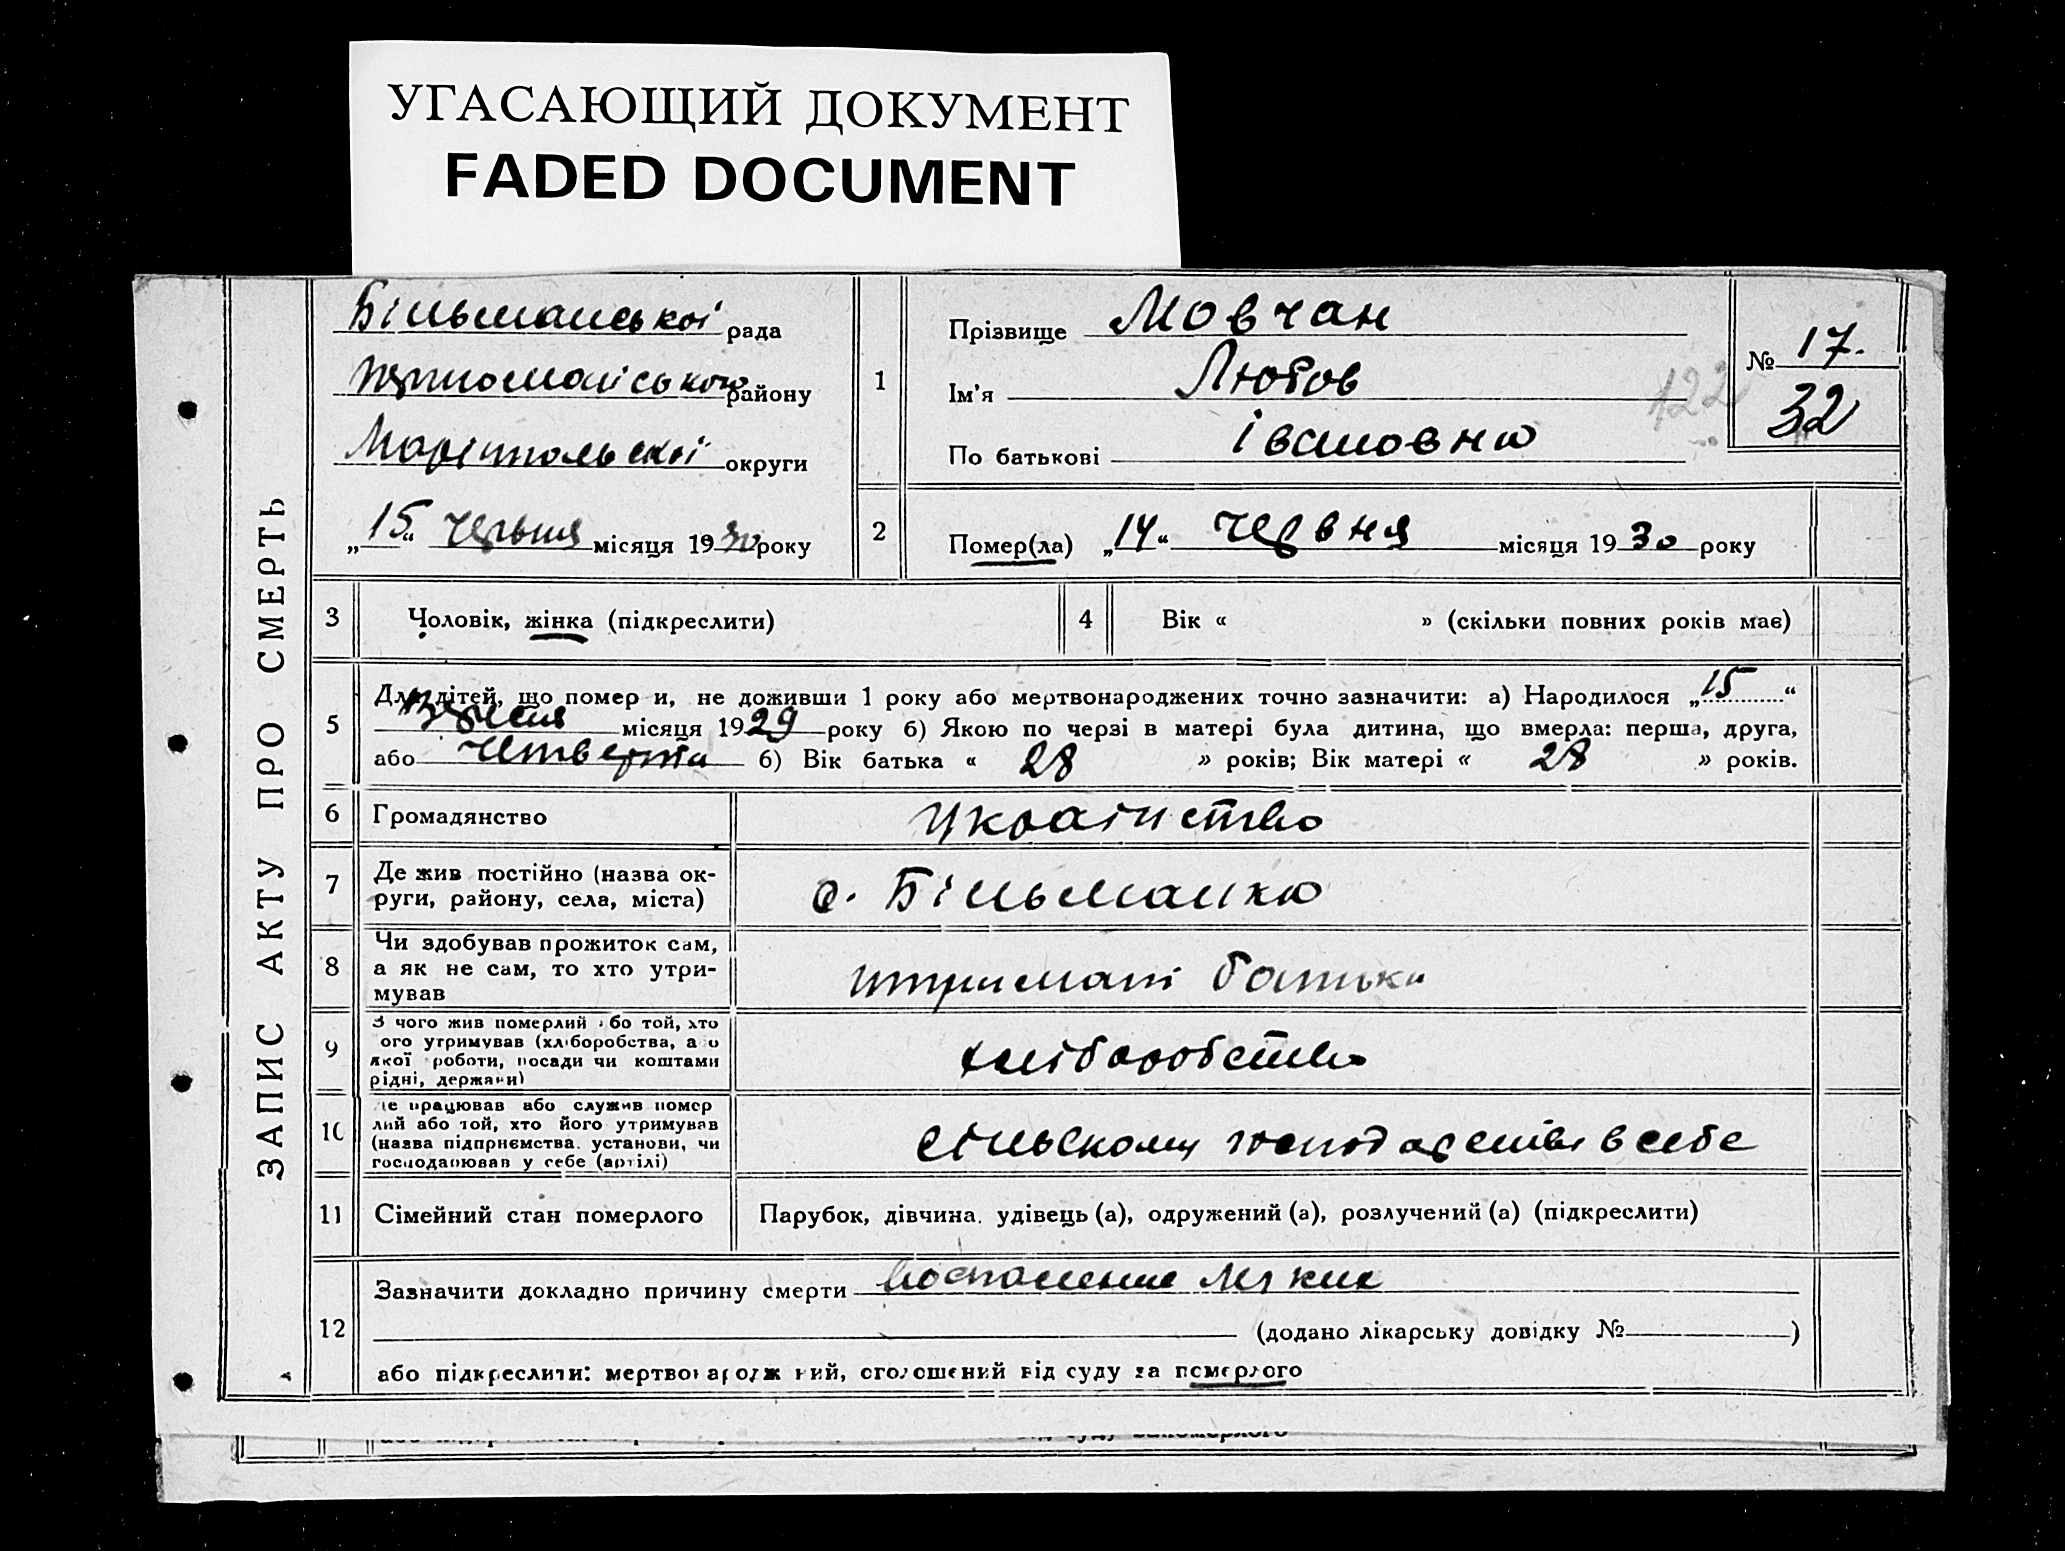 УГАСАЮЩИЙ ДОКУМЕНТ
FADED DOCUMENT
ЗАПИС АКТУ ПРО СМЕРТЬ
Більманської рада
району
Маріпольської округи
„15“ червня місяця 1930 року
1
Прізвище Мовчан
Ім'я Любов
По батькові Івановна
№ 17.
32
122
2
Помер(ла) „14“ червня місяця 1930 року
3 Чоловік, жінка (підкреслити)
4 Вік « » (скільки повних років має)
5
Для дітей, що померли, не доживши 1 року або мертвонароджених точно зазначити: а) Народилося „15“
місяця 1929 року б) Якою по черзі в матері була дитина, що вмерла: перша, друга,
або четверта б) Вік батька « 28 » років; Вік матері « 28 » років.
6 Громадянство Украінство
7
Де жив постійно (назва ок-
руги, району, села, міста)
с. Більманка
8
Чи здобував прожиток сам,
а як не сам, то хто утри-
мував
батьки
9
З чого жив померлий або той, хто
ого утримував (хліборобства, або
якої роботи, посади чи коштами
рідні, держави)
хліборобство
10
Де працював або служив помер
лий або той, хто його утримував
(назва підприємства, установи, чи
господарював у себе (артілі)
сільському господарстві в себе
11 Сімейний стан померлого Парубок, дівчина, удівець (а), одружений (а), розлучений (а) (підкреслити)
12
Зазначити докладно причину смерти воспаление
(додано лікарську довідку № )
або підкреслити: мертвонароджений, оголошений від суду за померлого